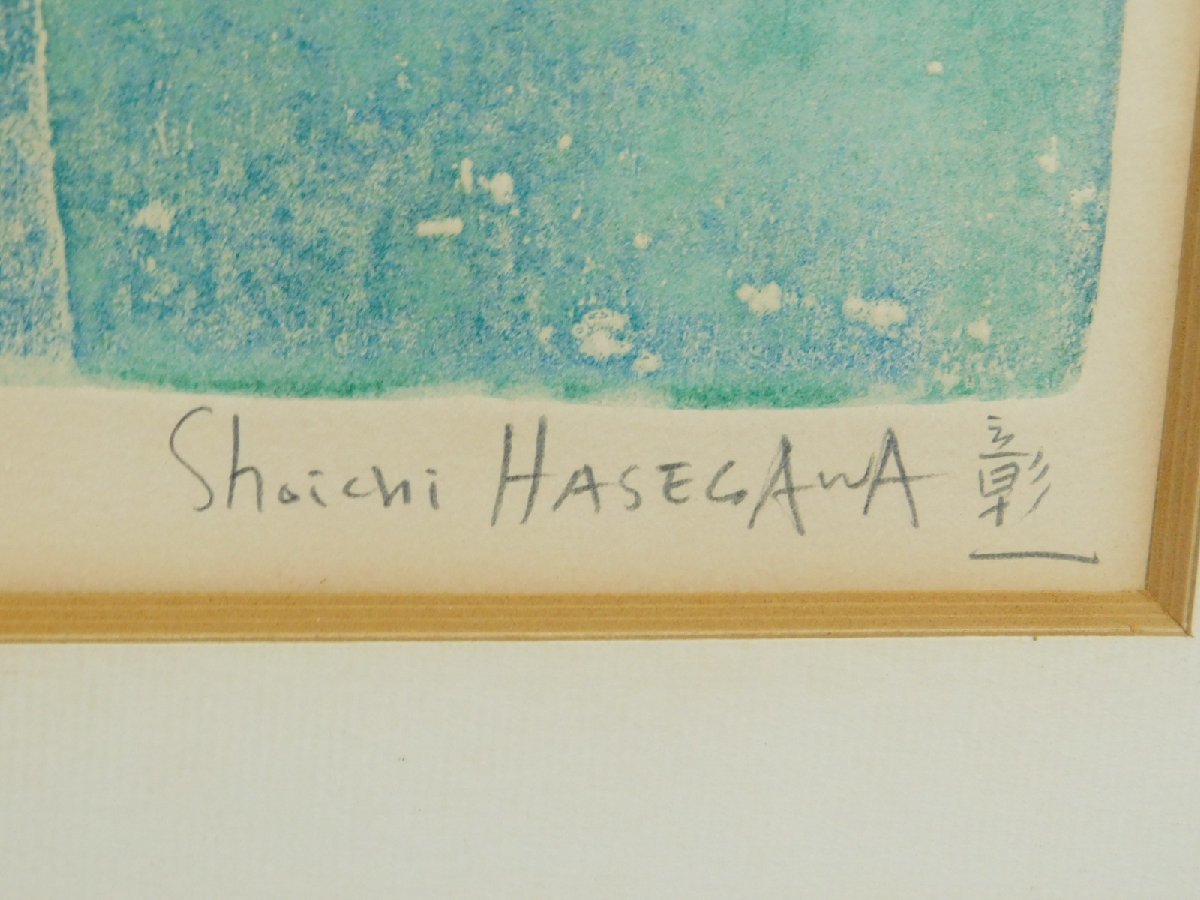 Shoichi HASEGAWA 彰一